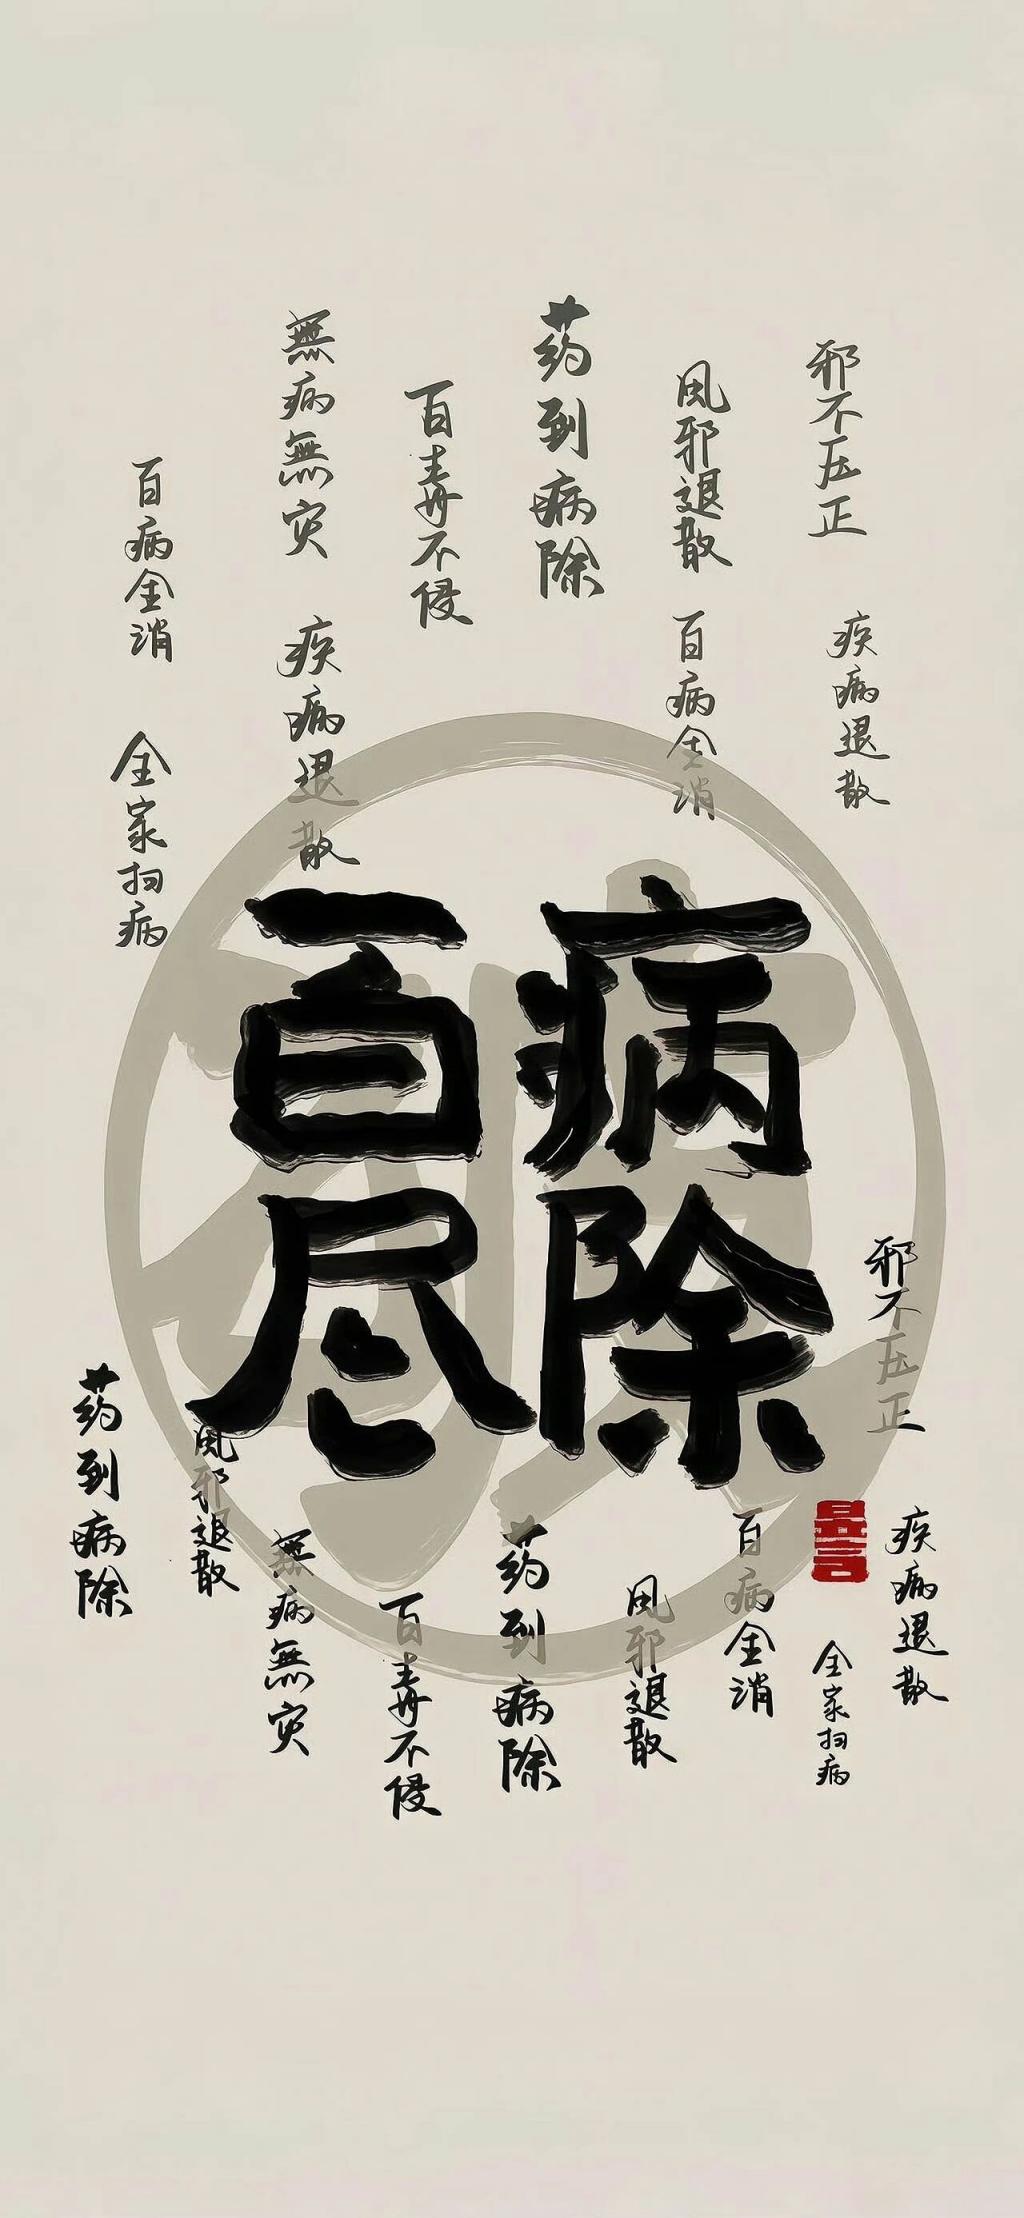 無病無灾
药到病除
邪不压正
风邪退散
百毒不侵
百病全消
疾病退散
百病全消
疾病退散
全家扫病
百病
尽除
邪不压正
药到病除
风邪退散
疾病退散
百病全消
無病無灾
药到病除
风邪退散
百毒不侵
全家扫病